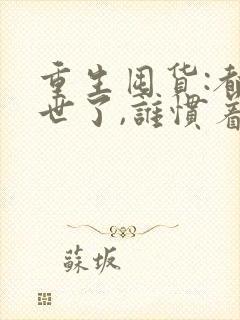 重生囤货:都
世了,誰慣着
蘇坂